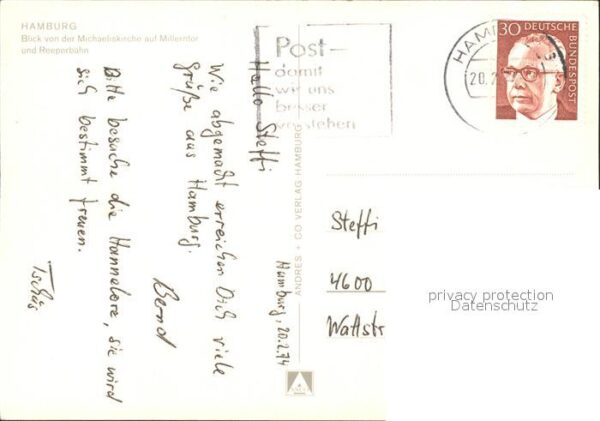 HAMBURG
Blick von der Michaeliskirche auf Millerntor
und Reeperbahn
Post-
damit
wir uns
besser
verstehen
HAM
20.2
30 DEUTSCHE
BUNDESPOST
Hamburg, 20.2.74
Hallo Steffi
Wie abgemacht erreichen Dich viele
Grüße aus Hamburg.
Bernd
Bitte besuche die Hannelore, sie wird
sich bestimmt freuen.
Tschüs
ANDRES + CO VERLAG HAMBURG
Steffi
4600
Wattstr
privacy protection
Datenschutz